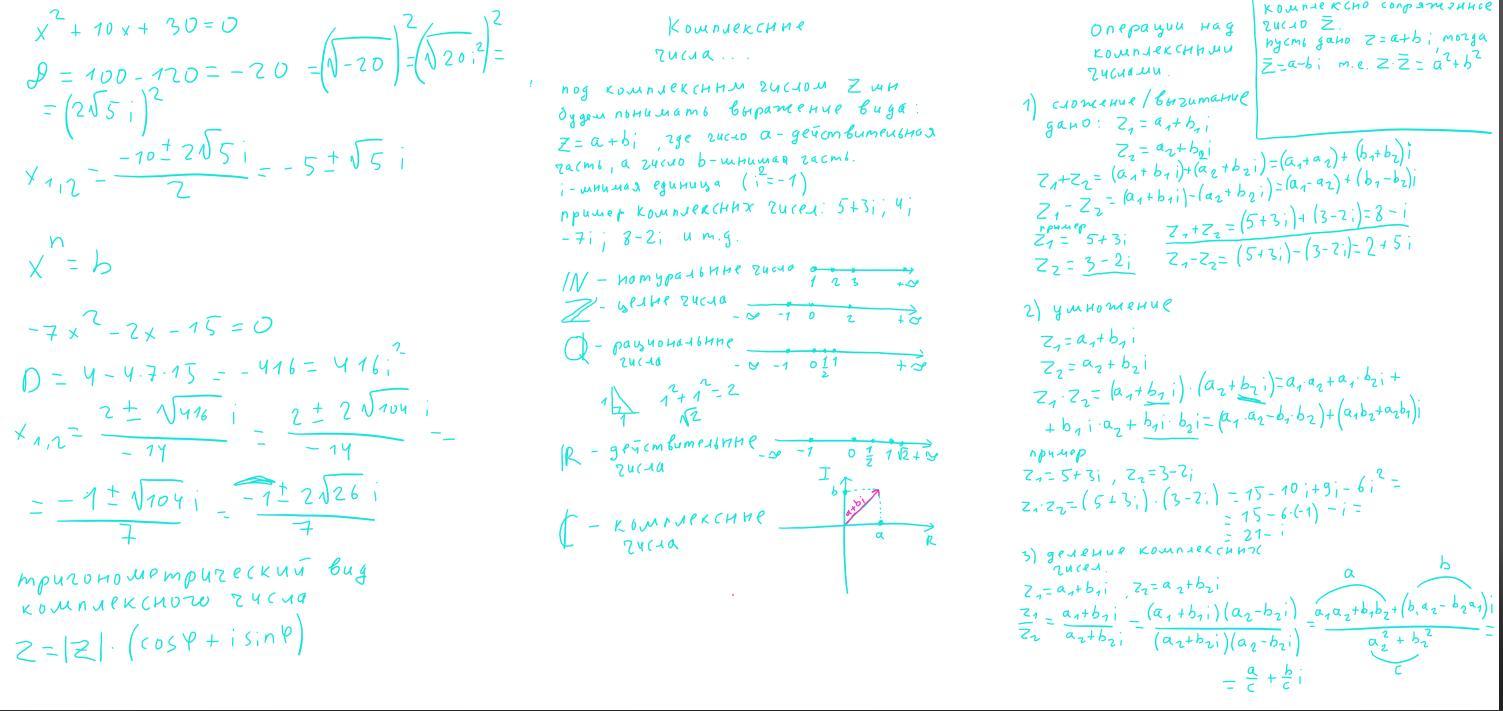 x² + 10x + 30 = 0
D = 100 - 120 = -20 = (√-20)² = (√20i²)² =
= (2√5 i)²
x₁,₂ = (-10 ± 2√5 i)/2 = -5 ± √5 i
xⁿ = b
-7x² - 2x - 15 = 0
D = 4 - 4·7·15 = -416 = 416i²
x₁,₂ = (2 ± √416 i)/-14 = (2 ± 2√104 i)/-14 =
= (-1 ± √104 i)/7 = (-1 ± 2√26 i)/7
тригонометрический вид
комплексного числа
Z = |Z|·(cosφ + i sinφ)
Комплексные
числа...
под комплексным числом Z мы
будем понимать выражение вида:
Z = a + bi, где число a - действительная
часть, а число b - мнимая часть.
i - мнимая единица (i² = -1)
пример комплексных чисел: 5+3i; 4i
-7i; 8-2i и т.д.
ℕ - натуральные числа 1 2 3 +∞
ℤ - целые числа -∞ -1 0 2 +∞
ℚ - рациональные
числа -∞ -1 0 1/2 1 +∞
1 1 1² + 1² = 2
√2
ℝ - действительные
числа -∞ -1 0 1/2 1 √2 +∞
I
b a+bi
ℂ - комплексные
числа
a R
операции над
комплексными
числами.
комплексно сопряженное
число Z̄.
пусть дано Z = a+bi, тогда
Z̄ = a-bi т.е. Z·Z̄ = a² + b²
1) сложение/вычитание
дано: Z₁ = a₁ + b₁i
Z₂ = a₂ + b₂i
Z₁+Z₂ = (a₁+b₁i)+(a₂+b₂i) = (a₁+a₂)+(b₁+b₂)i
Z₁-Z₂ = (a₁+b₁i)-(a₂+b₂i) = (a₁-a₂)+(b₁-b₂)i
пример
Z₁ = 5+3i Z₁+Z₂ = (5+3i)+(3-2i) = 8-i
Z₂ = 3-2i Z₁-Z₂ = (5+3i)-(3-2i) = 2+5i
2) умножение
Z₁ = a₁ + b₁i
Z₂ = a₂ + b₂i
Z₁·Z₂ = (a₁+b₁i)·(a₂+b₂i) = a₁·a₂ + a₁·b₂i +
+ b₁i·a₂ + b₁i·b₂i = (a₁·a₂ - b₁·b₂) + (a₁b₂ + a₂b₁)i
пример
Z₁ = 5+3i, Z₂ = 3-2i
Z₁·Z₂ = (5+3i)·(3-2i) = 15 - 10i + 9i - 6i² =
= 15 - 6·(-1) - i =
= 21 - i
3) деление комплексных
чисел.
Z₁ = a₁+b₁i, Z₂ = a₂+b₂i
a b
Z₁/Z₂ = (a₁+b₁i)/(a₂+b₂i) = (a₁+b₁i)(a₂-b₂i)/(a₂+b₂i)(a₂-b₂i) = (a₁a₂+b₁b₂+(b₁a₂-b₂a₁)i)/(a₂²+b₂²) =
c
= a/c + b/c i